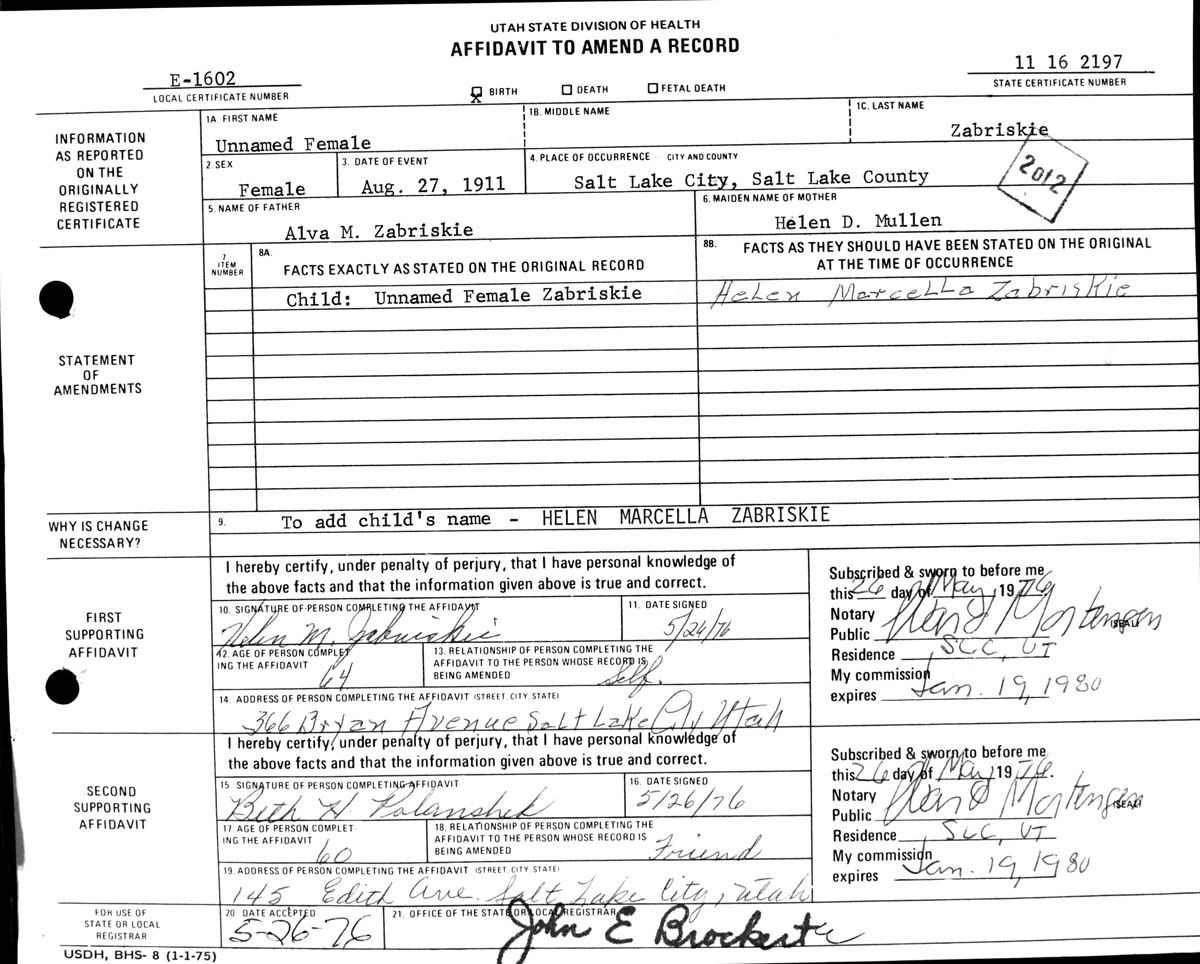 UTAH STATE DIVISION OF HEALTH
AFFIDAVIT TO AMEND A RECORD
E-1602
LOCAL CERTIFICATE NUMBER
BIRTH
DEATH
FETAL DEATH
11 16 2197
STATE CERTIFICATE NUMBER
INFORMATION
AS REPORTED
ON THE
ORIGINALLY
REGISTERED
CERTIFICATE
1A. FIRST NAME
Unnamed Female
1B. MIDDLE NAME
1C. LAST NAME
Zabriskie
2. SEX
Female
3. DATE OF EVENT
Aug. 27, 1911
4. PLACE OF OCCURRENCE - CITY AND COUNTY
Salt Lake City, Salt Lake County
2012
5. NAME OF FATHER
Alva M. Zabriskie
6. MAIDEN NAME OF MOTHER
Helen D. Mullen
STATEMENT
OF
AMENDMENTS
7
ITEM
NUMBER
8A.
FACTS EXACTLY AS STATED ON THE ORIGINAL RECORD
8B. FACTS AS THEY SHOULD HAVE BEEN STATED ON THE ORIGINAL
AT THE TIME OF OCCURRENCE
Child: Unnamed Female Zabriskie
Helen Marcella Zabriskie
WHY IS CHANGE
NECESSARY?
9. To add child's name - HELEN MARCELLA ZABRISKIE
FIRST
SUPPORTING
AFFIDAVIT
I hereby certify, under penalty of perjury, that I have personal knowledge of
the above facts and that the information given above is true and correct.
10. SIGNATURE OF PERSON COMPLETING THE AFFIDAVIT
Helen M. Zabriskie
11. DATE SIGNED
5/26/76
12. AGE OF PERSON COMPLET
ING THE AFFIDAVIT
64
13. RELATIONSHIP OF PERSON COMPLETING THE
AFFIDAVIT TO THE PERSON WHOSE RECORD IS
BEING AMENDED
Self.
14. ADDRESS OF PERSON COMPLETING THE AFFIDAVIT (STREET, CITY, STATE)
366 Bryan Avenue Salt Lake City Utah
Subscribed & sworn to before me
this 26 day of May, 1976
Notary
Public Mortensen (SEAL)
Residence SLC, UT
My commission
expires Jan. 19, 1980
SECOND
SUPPORTING
AFFIDAVIT
I hereby certify, under penalty of perjury, that I have personal knowledge of
the above facts and that the information given above is true and correct.
15 SIGNATURE OF PERSON COMPLETING AFFIDAVIT
Beth H Polanshek
16. DATE SIGNED
5/26/76
17. AGE OF PERSON COMPLET
ING THE AFFIDAVIT
60
18. RELATIONSHIP OF PERSON COMPLETING THE
AFFIDAVIT TO THE PERSON WHOSE RECORD IS
BEING AMENDED
Friend
19. ADDRESS OF PERSON COMPLETING THE AFFIDAVIT (STREET, CITY, STATE)
145 Edith Ave. Salt Lake City, Utah
Subscribed & sworn to before me
this 26 day of May, 1976.
Notary
Public Mortensen (SEAL)
Residence SLC, UT
My commission
expires Jan. 19, 1980
FOR USE OF
STATE OR LOCAL
REGISTRAR
20 DATE ACCEPTED
5-26-76
21. OFFICE OF THE STATE OR LOCAL REGISTRAR
John E Brockert
USDH, BHS- 8 (1-1-75)